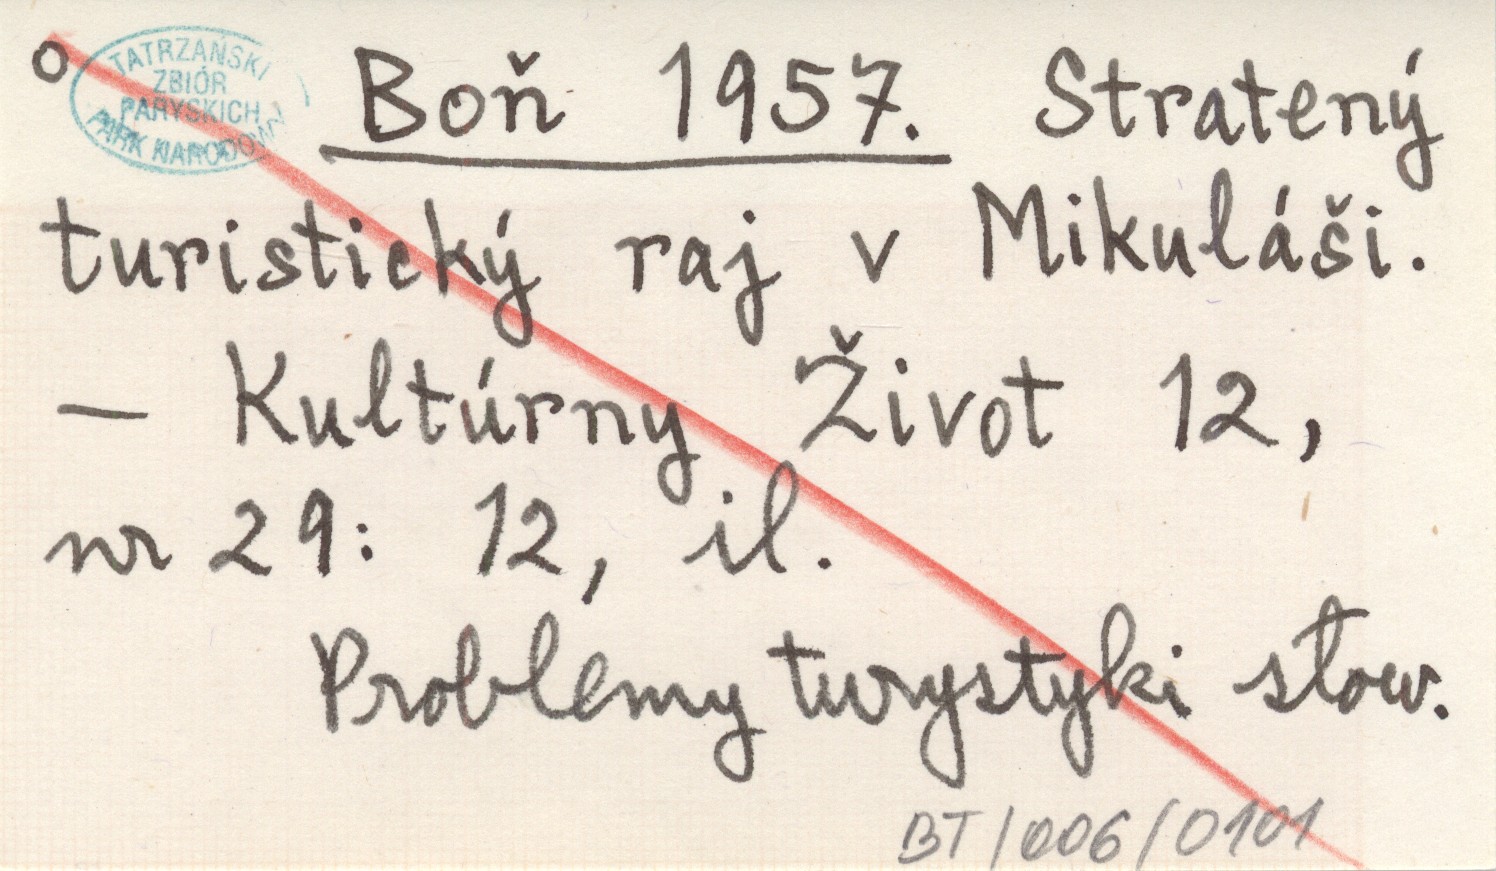 o
TATRZAŃSKI
ZBIÓR
PARYSKICH
PARK NARODOWY
Boň 1957. Stratený
turistický raj v Mikuláši.
— Kultúrny Život 12,
nr 29: 12, il.
Problemy turystyki słow.
BT/006/0101